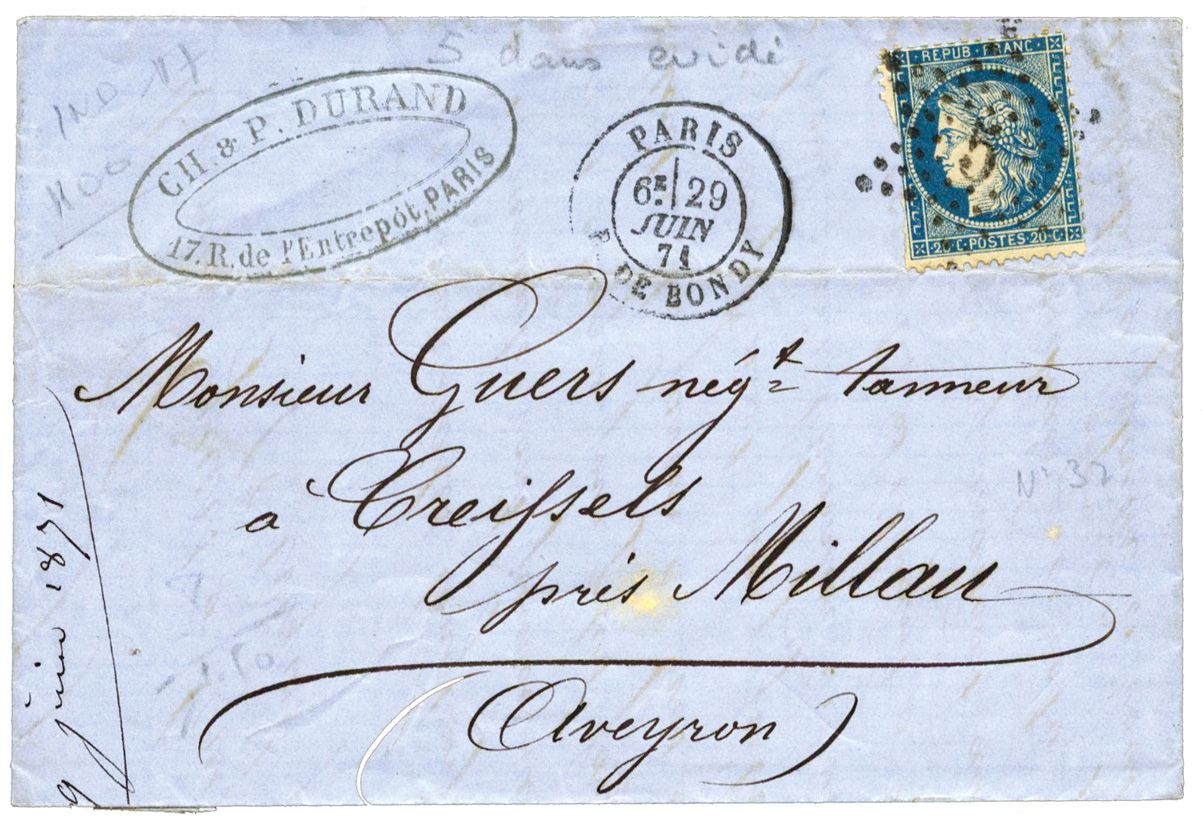 5 dans evidé
IND 17
1100
CH. & P. DURAND
17. R. de l'Entrepôt, PARIS
PARIS
6E 29
JUIN
71
DE BONDY
REPUB. FRANC.
5
20 C. POSTES 20 C.
Monsieur Guers négt tanneur
à Creissels
N° 37
près Millau
(Aveyron)
9 juin 1871